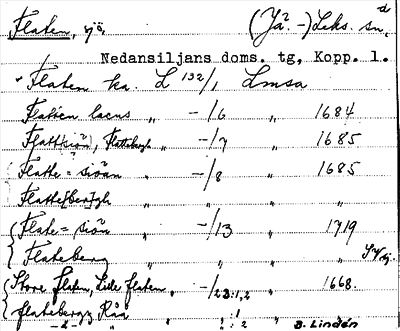 Flaten, sjö, (Jä? -) Leks. sn,
Nedansiljans doms. tg, Kopp. l.
Flaten ka. L 132/1 Lmsa
Flatten lacus " -/6 " 1684
Flatt(siön), Flatteberg " -/7 " 1685
(Flatte=siön " -/8 " 1685
Flatte[ber]gh " " " "
(Flate=siön " -/13 " 1719
Flateberg " " " "
(Store flaten, Lille flaten " -/23:1,2 " 1668.
flatebergz Råå " " :1
-2- " : 2 B. Lindén